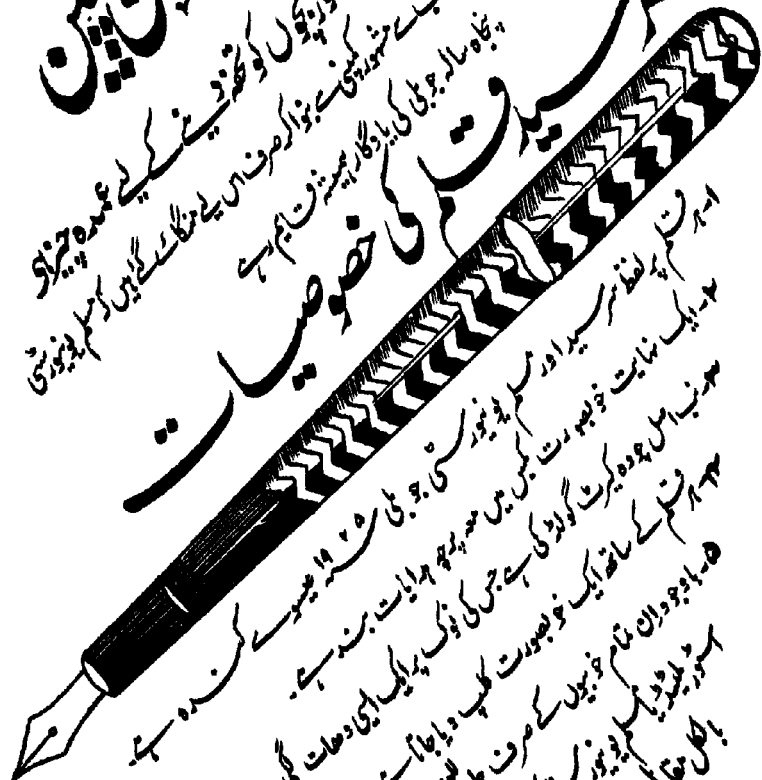 پین
اور بچوں کو تحفہ دینے کے لیے عمدہ چیز اور
سے مشہور کمپنی سے بنوا کر صرف اس لیے منگائے گئے ہیں کہ مسلم یونیورسٹی
پنجاہ سالہ جوبلی کی یادگار ہمیشہ قایم رہے
سر سید قلم کی خصوصیات
۱- ہر قلم پر لفظ سر سید اور مسلم یونیورسٹی جوبلی سنہ ۱۹۲۵ عیسوی کندہ ہے۔
۲- ایک نہایت خوبصورت بکس میں معہ پرچہ ہدایات بند ہے۔
۳- نب اصل چودہ کیرٹ گولڈ کی ہے جس کی نوک پر ایک ایسی دھات لگی
۴- ہر قلم کے ساتھ ایک خوبصورت کلپ دیا جاتا ہے
۵- باوجود ان تمام خوبیوں کے صرف
اسٹور لمیٹڈ مسلم یونیورسٹی
بالکل